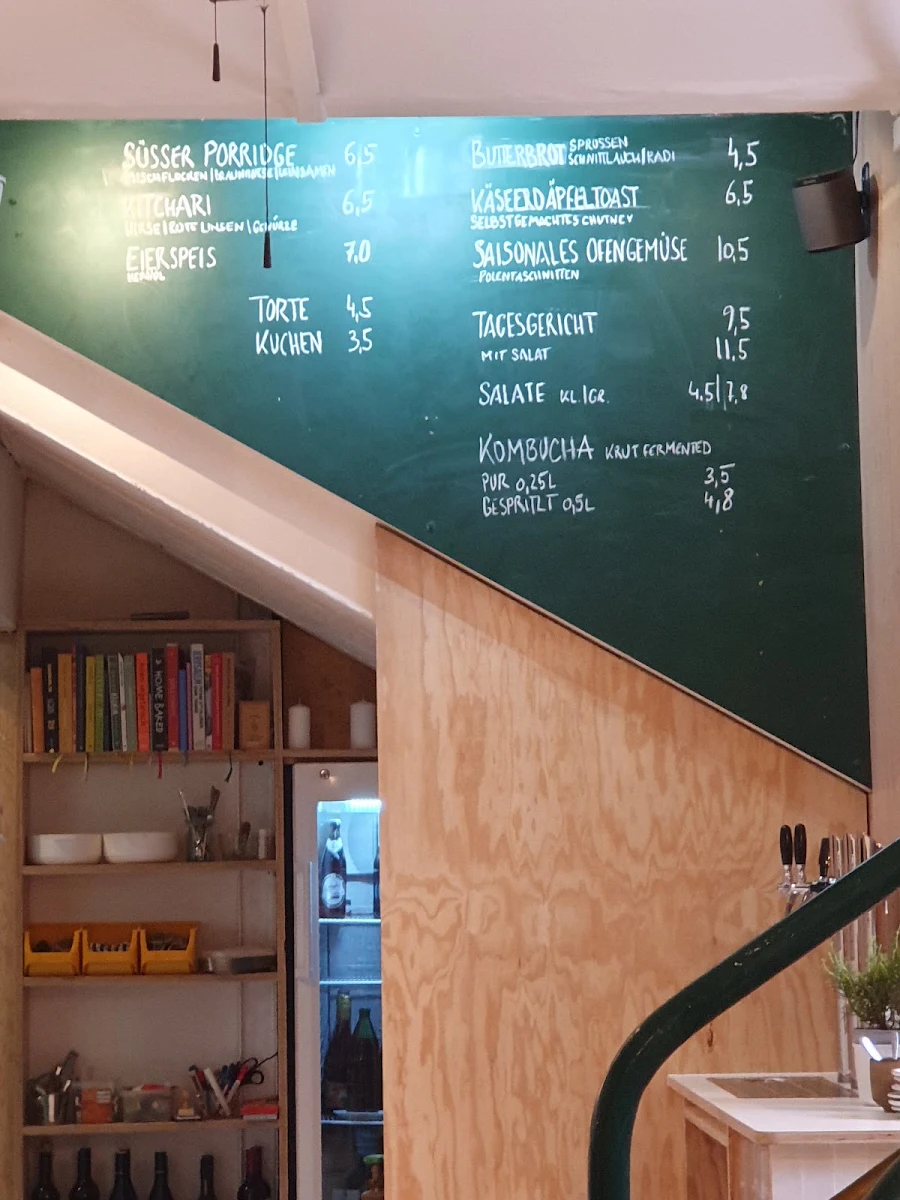 SÜSSER PORRIDGE 6,5
KITCHARI 6,5
HIRSE | ROTE LINSEN | GEWÜRZE
EIERSPEIS 7,0
KERNÖL
TORTE 4,5
KUCHEN 3,5
BUTTERBROT SPROSSEN 4,5
SCHNITTLAUCH | RADI
KÄSEERDÄPFELTOAST 6,5
SELBSTGEMACHTES CHUTNEY
SAISONALES OFENGEMÜSE 10,5
POLENTASCHNITTEN
TAGESGERICHT 9,5
MIT SALAT 11,5
SALATE KL.|GR. 4,5|7,8
KOMBUCHA KRUT FERMENTED
PUR 0,25L 3,5
GESPRITZT 0,5L 4,8
HOME BAKED